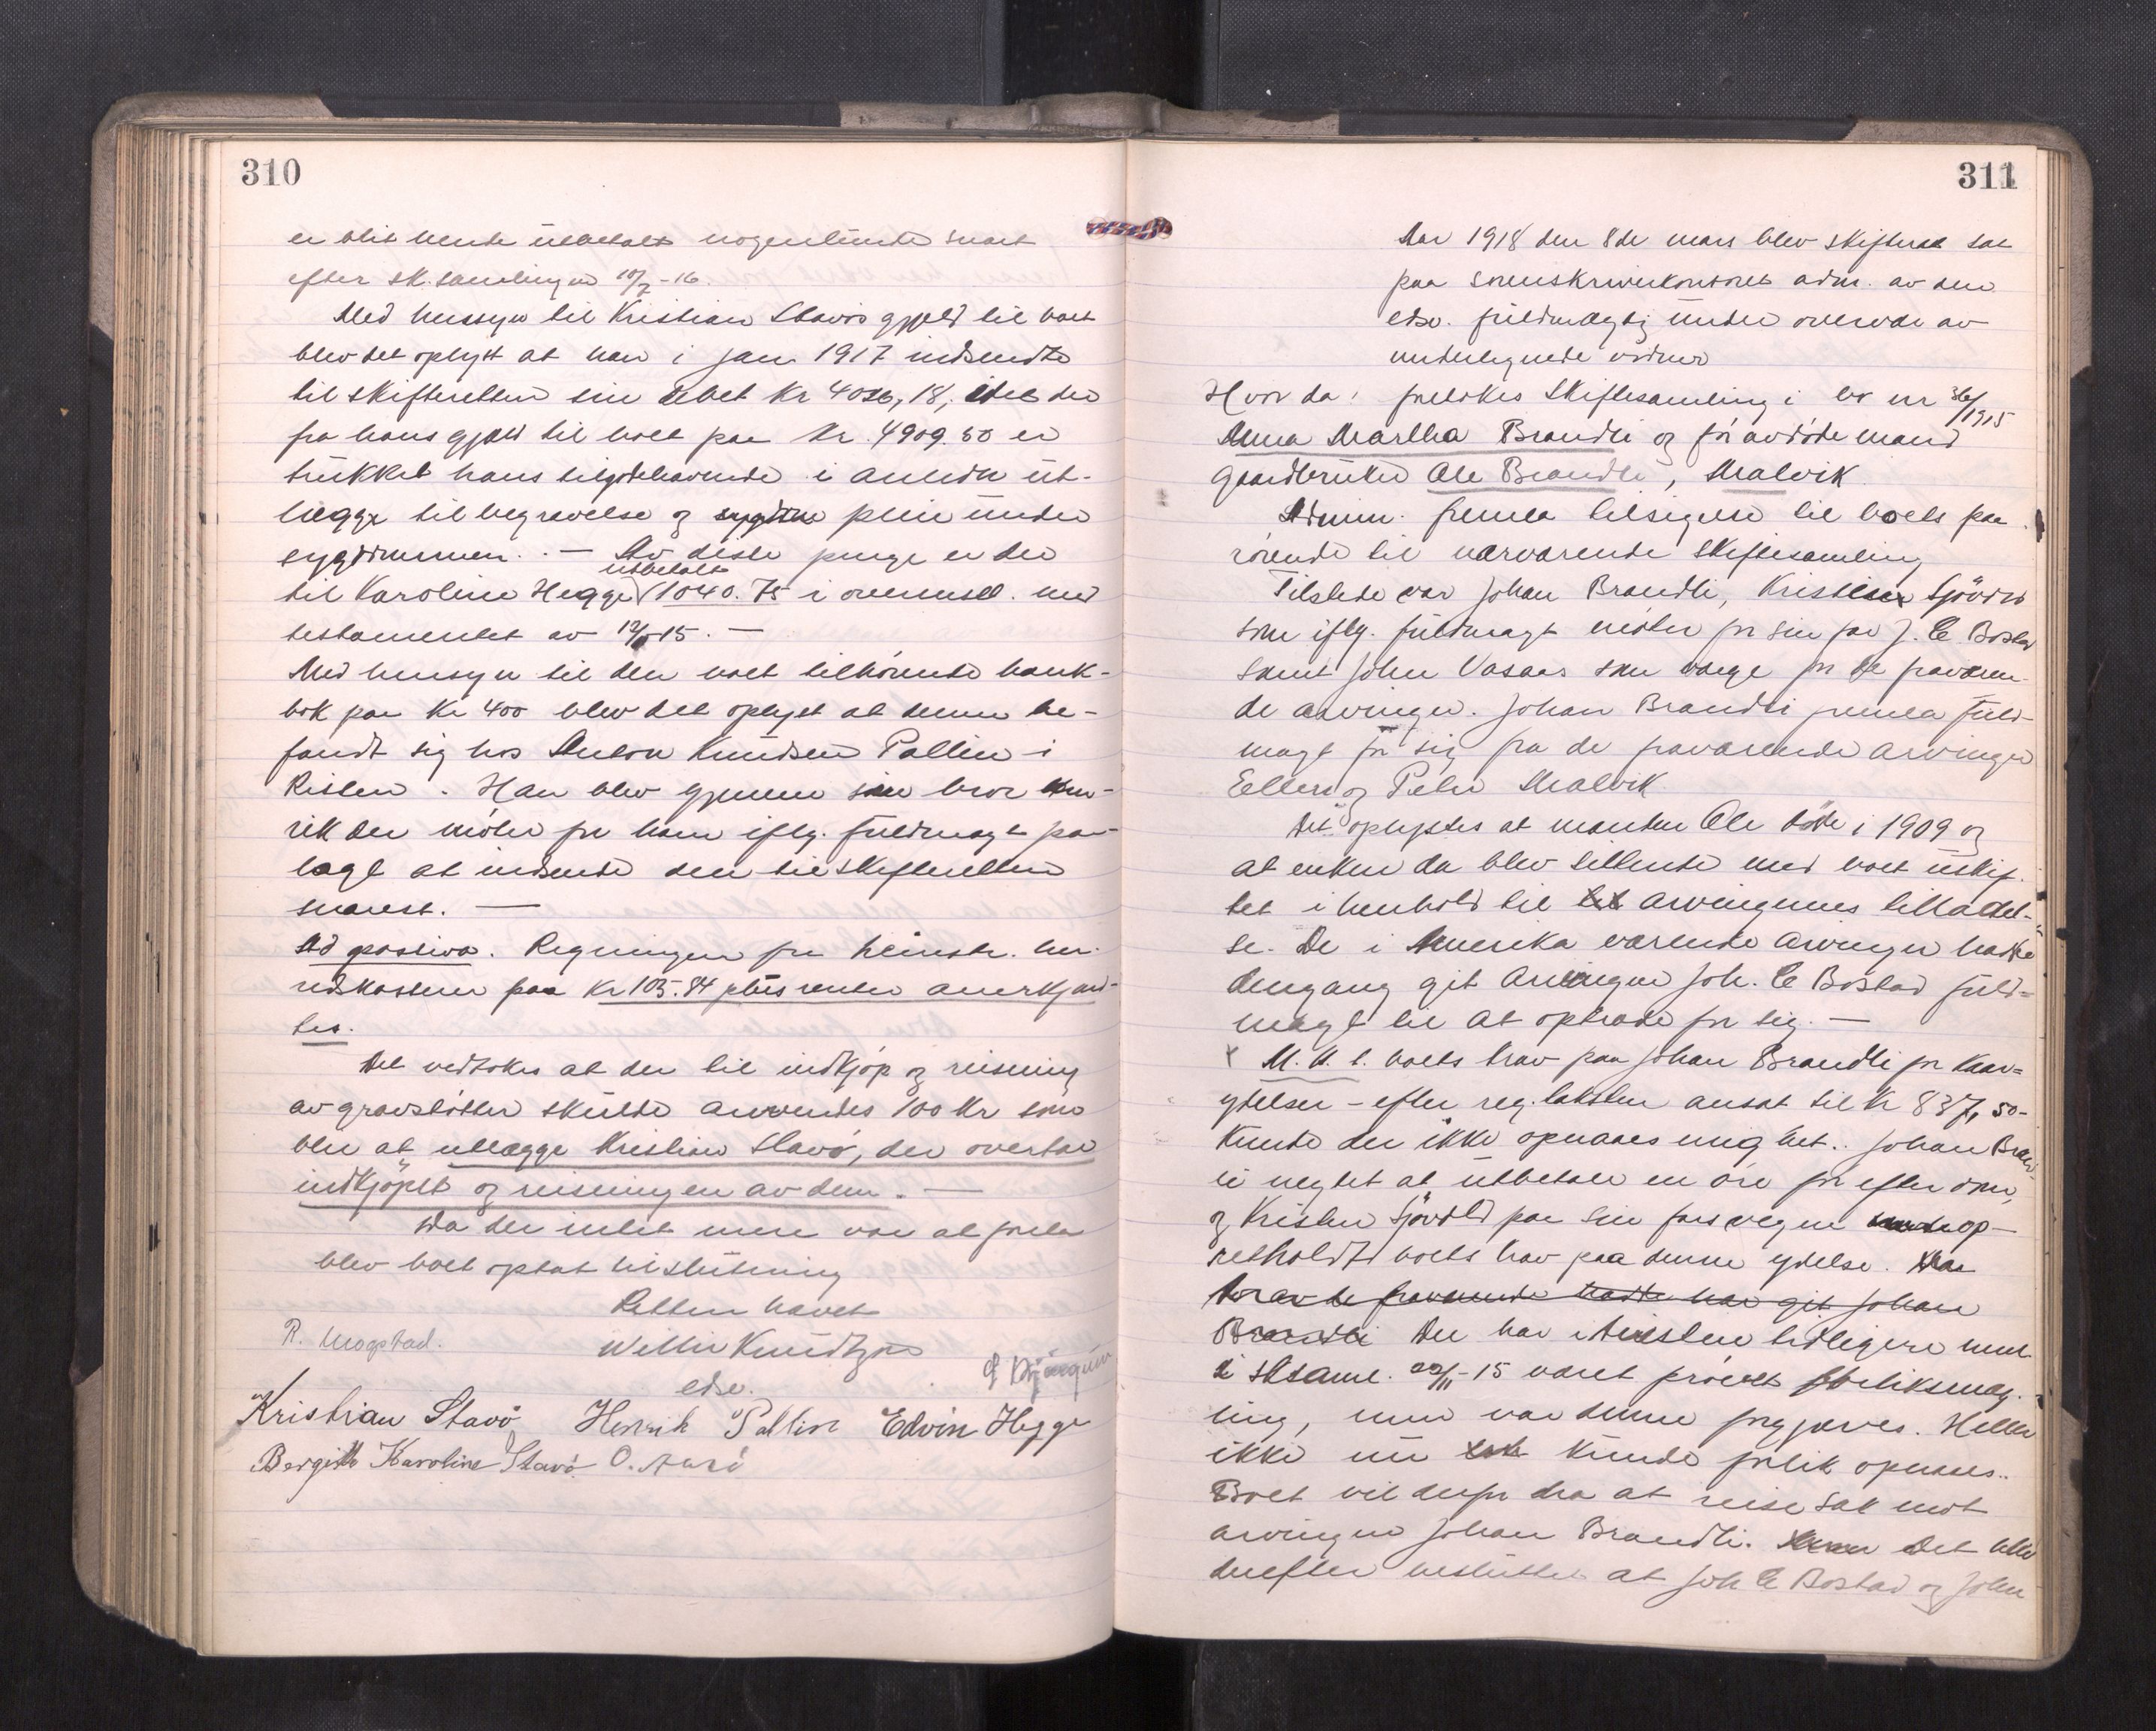 310
er blit hende utbetalt nogenlunde snart
efter sk.samlingen 10/7-16.
Med hensyn til Kristian Stavøs gjæld til boet
blev det oplyst at han i jan 1917 indsendte
til skifteretten sin debet Kr 4036,18, idet der
fra hans gjæld til boet paa Kr. 4909.50 er
trukket hans tilgodehavende i anledn ut-
lægge til begravelse og pleie under
sygdommen. - Av disse penge er der
til Karoline Hegge utbetalt 1040.75 i overensst. med
testamentet av 12/5-15. -
Med hensyn til den boet tilhørende bank-
bok paa Kr 400 blev det oplyst at denne be-
fandt sig hos Anton Knudsen Pallin i
Rislen. Han blev gjennem sin bror Hen-
rik der møter for ham iflg. fuldmagt paa-
lagt at indsende den til skifteretten
snarest. -
Ad passiva. Regningen fra Leinstr. her-
redskasserer paa Kr 105.84 plus renter anerkjend-
tes.
Det vedtokes at der til indkjøp og reisning
av gravstøtter skulde anvendes 100 Kr som
blev at utlægge Kristian Stavø, der overtar
indkjøpet og reisningen av dem. -
Da der intet mere var at foreta
blev boet optat til slutning
Retten hævet
R. Mogstad. Willie Knudtzon
edsv.
Kristian Stavø Henrik Pallin Edvin Hegge
Bergitte Karoline Stavø O. Aunø
311
Aar 1918 den 8de mars blev skifteret sat
paa sorenskriverkontoret adm. av den
edsv. fuldmægtig under overvær av
undertegnede vidner
Hvor da: foretokes Skiftesamling i bo nr 36/1915
Anna Martha Brandli og før avdøde mand
gaardbruker Ole Brandli, Malvik.
Admin. fremla tilsigelse til boets paa-
rørende til nærværende skiftesamling
Tilstede var Johan Brandli, Kristen Sjøvold
som iflg. fuldmagt møter for sin far J. E Bostad
samt John Vasaas som værge for de fraværen-
de arvinger. Johan Brandli fremla fuld-
magt for sig fra de fraværende arvinger
Ellers og Peter Malvik.
Det oplystes at manden Ole døde i 1909 og
at enken da blev sittende med boet uskif-
tet i henhold til arvingernes tilladel-
se. De i Amerika værende arvinger hadde
dengang git arvingen Joh. E Bostad fuld-
magt til at optræde for sig. -
M. H. t. boets krav paa Johan Brandli for kaar-
ydelser - efter reg.taksten ansat til Kr 837,50-
kunde der ikke opnaaes enighet. Johan Brand-
li negtet at utbetale en øre for efter dom,
og Kristen Sjøvold paa sin fars vegne op-
retholdt boets krav paa denne ydelse.
hvorav de fraværende hadde har git Johan
Brandli Der har i tvisten tidligere
i sksaml. 22/11-15 været prøvet forliksmeg-
ling, men var denne forgjæves. Heller
ikke nu kunde forlik opnaaes.
Boet vil derfor ha at reise sak mot
arvingen Johan Brandli. Det blev
derefter besluttet at Joh E Bostad og John